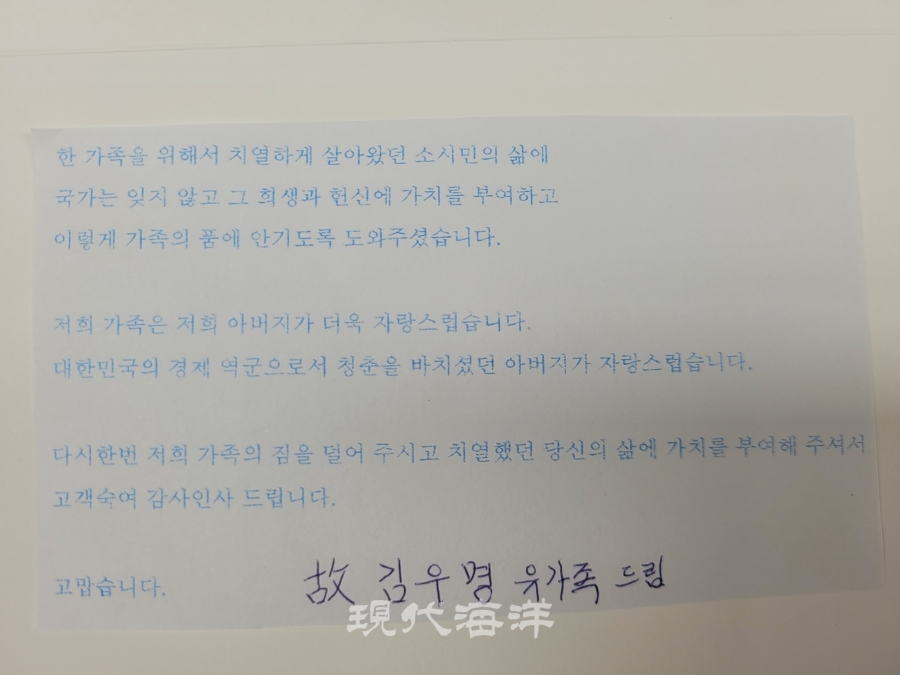 한 가족을 위해서 치열하게 살아왔던 소시민의 삶에
국가는 잊지 않고 그 희생과 헌신에 가치를 부여하고
이렇게 가족의 품에 안기도록 도와주셨습니다.
저희 가족은 저희 아버지가 더욱 자랑스럽습니다.
대한민국의 경제 역군으로서 청춘을 바치셨던 아버지가 자랑스럽습니다.
다시한번 저희 가족의 짐을 덜어 주시고 치열했던 당신의 삶에 가치를 부여해 주셔서
고객숙여 감사인사 드립니다.
고맙습니다. 故 김우명 유가족 드림
現代海洋